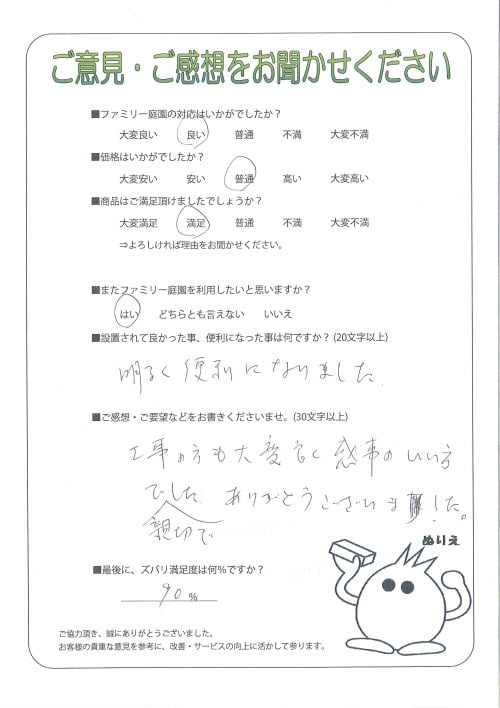 ご意見・ご感想をお聞かせください
■ファミリー庭園の対応はいかがでしたか？
大変良い 良い 普通 不満 大変不満
■価格はいかがでしたか？
大変安い 安い 普通 高い 大変高い
■商品はご満足頂けましたでしょうか？
大変満足 満足 普通 不満 大変不満
⇒よろしければ理由をお聞かせください。
■またファミリー庭園を利用したいと思いますか？
はい どちらとも言えない いいえ
■設置されて良かった事、便利になった事は何ですか？(20文字以上)
明るく便利になりました.
■ご感想・ご要望などをお書きくださいませ。(30文字以上)
工事の方も大変良く感事のいい方
でした ありがとうございました。
親切で
ぬりえ
■最後に、ズバリ満足度は何％ですか？
90 %
ご協力頂き、誠にありがとうございました。
お客様の貴重な意見を参考に、改善・サービスの向上に活かして参ります。